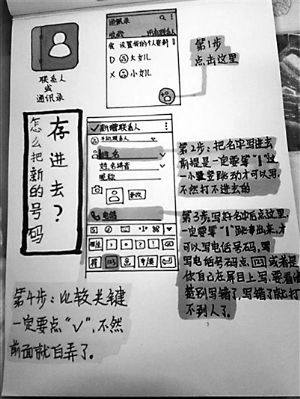 联系人
或
通讯录
收藏
设置你的个人资料
D 大女儿
X 小女儿
第1步
点击这里
怎么把新的号码
存进去?
新增联系人
姓名
电话
第2步:把名字写进去
前提是一定要等“|”这
一小竖
跳动才可以写,
不然打不进去的
第3步:写好名字点这里,
一定要等“|”跳出来,才
可以写电话号码,
写电话号码点
或者
你自己在屏幕上写,要看
写错了,写错了就打
不到人了。
第4步:比较关键
一定要点“√”,不然
前面就白弄了。